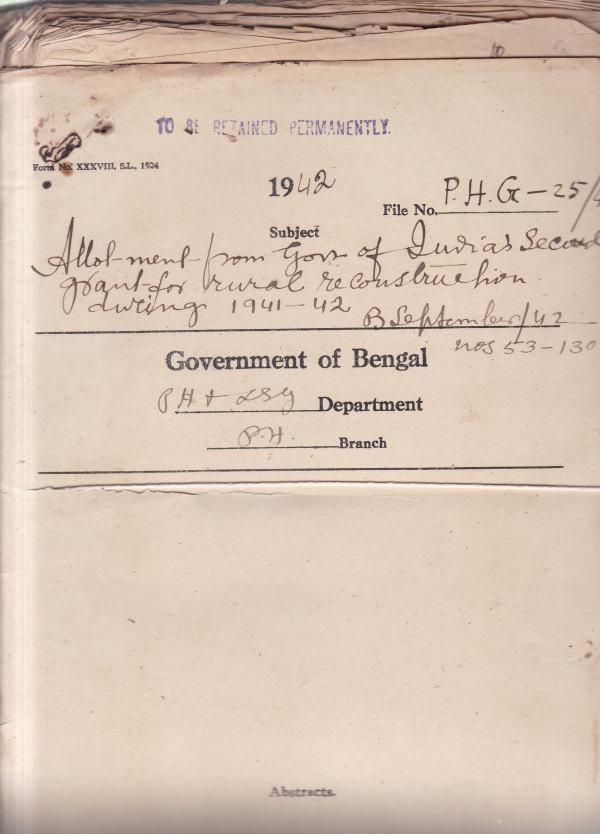 TO BE RETAINED PERMANENTLY.
Form No. XXXVIII, S.L., 1924
1942
File No. P.H.G-25/4
Subject
Allotment from Govt of India's Second
grant for rural reconstruction
during 1941-42
B September/42
nos 53-130
Government of Bengal
P H & LSG Department
P.H. Branch
Abstracts.